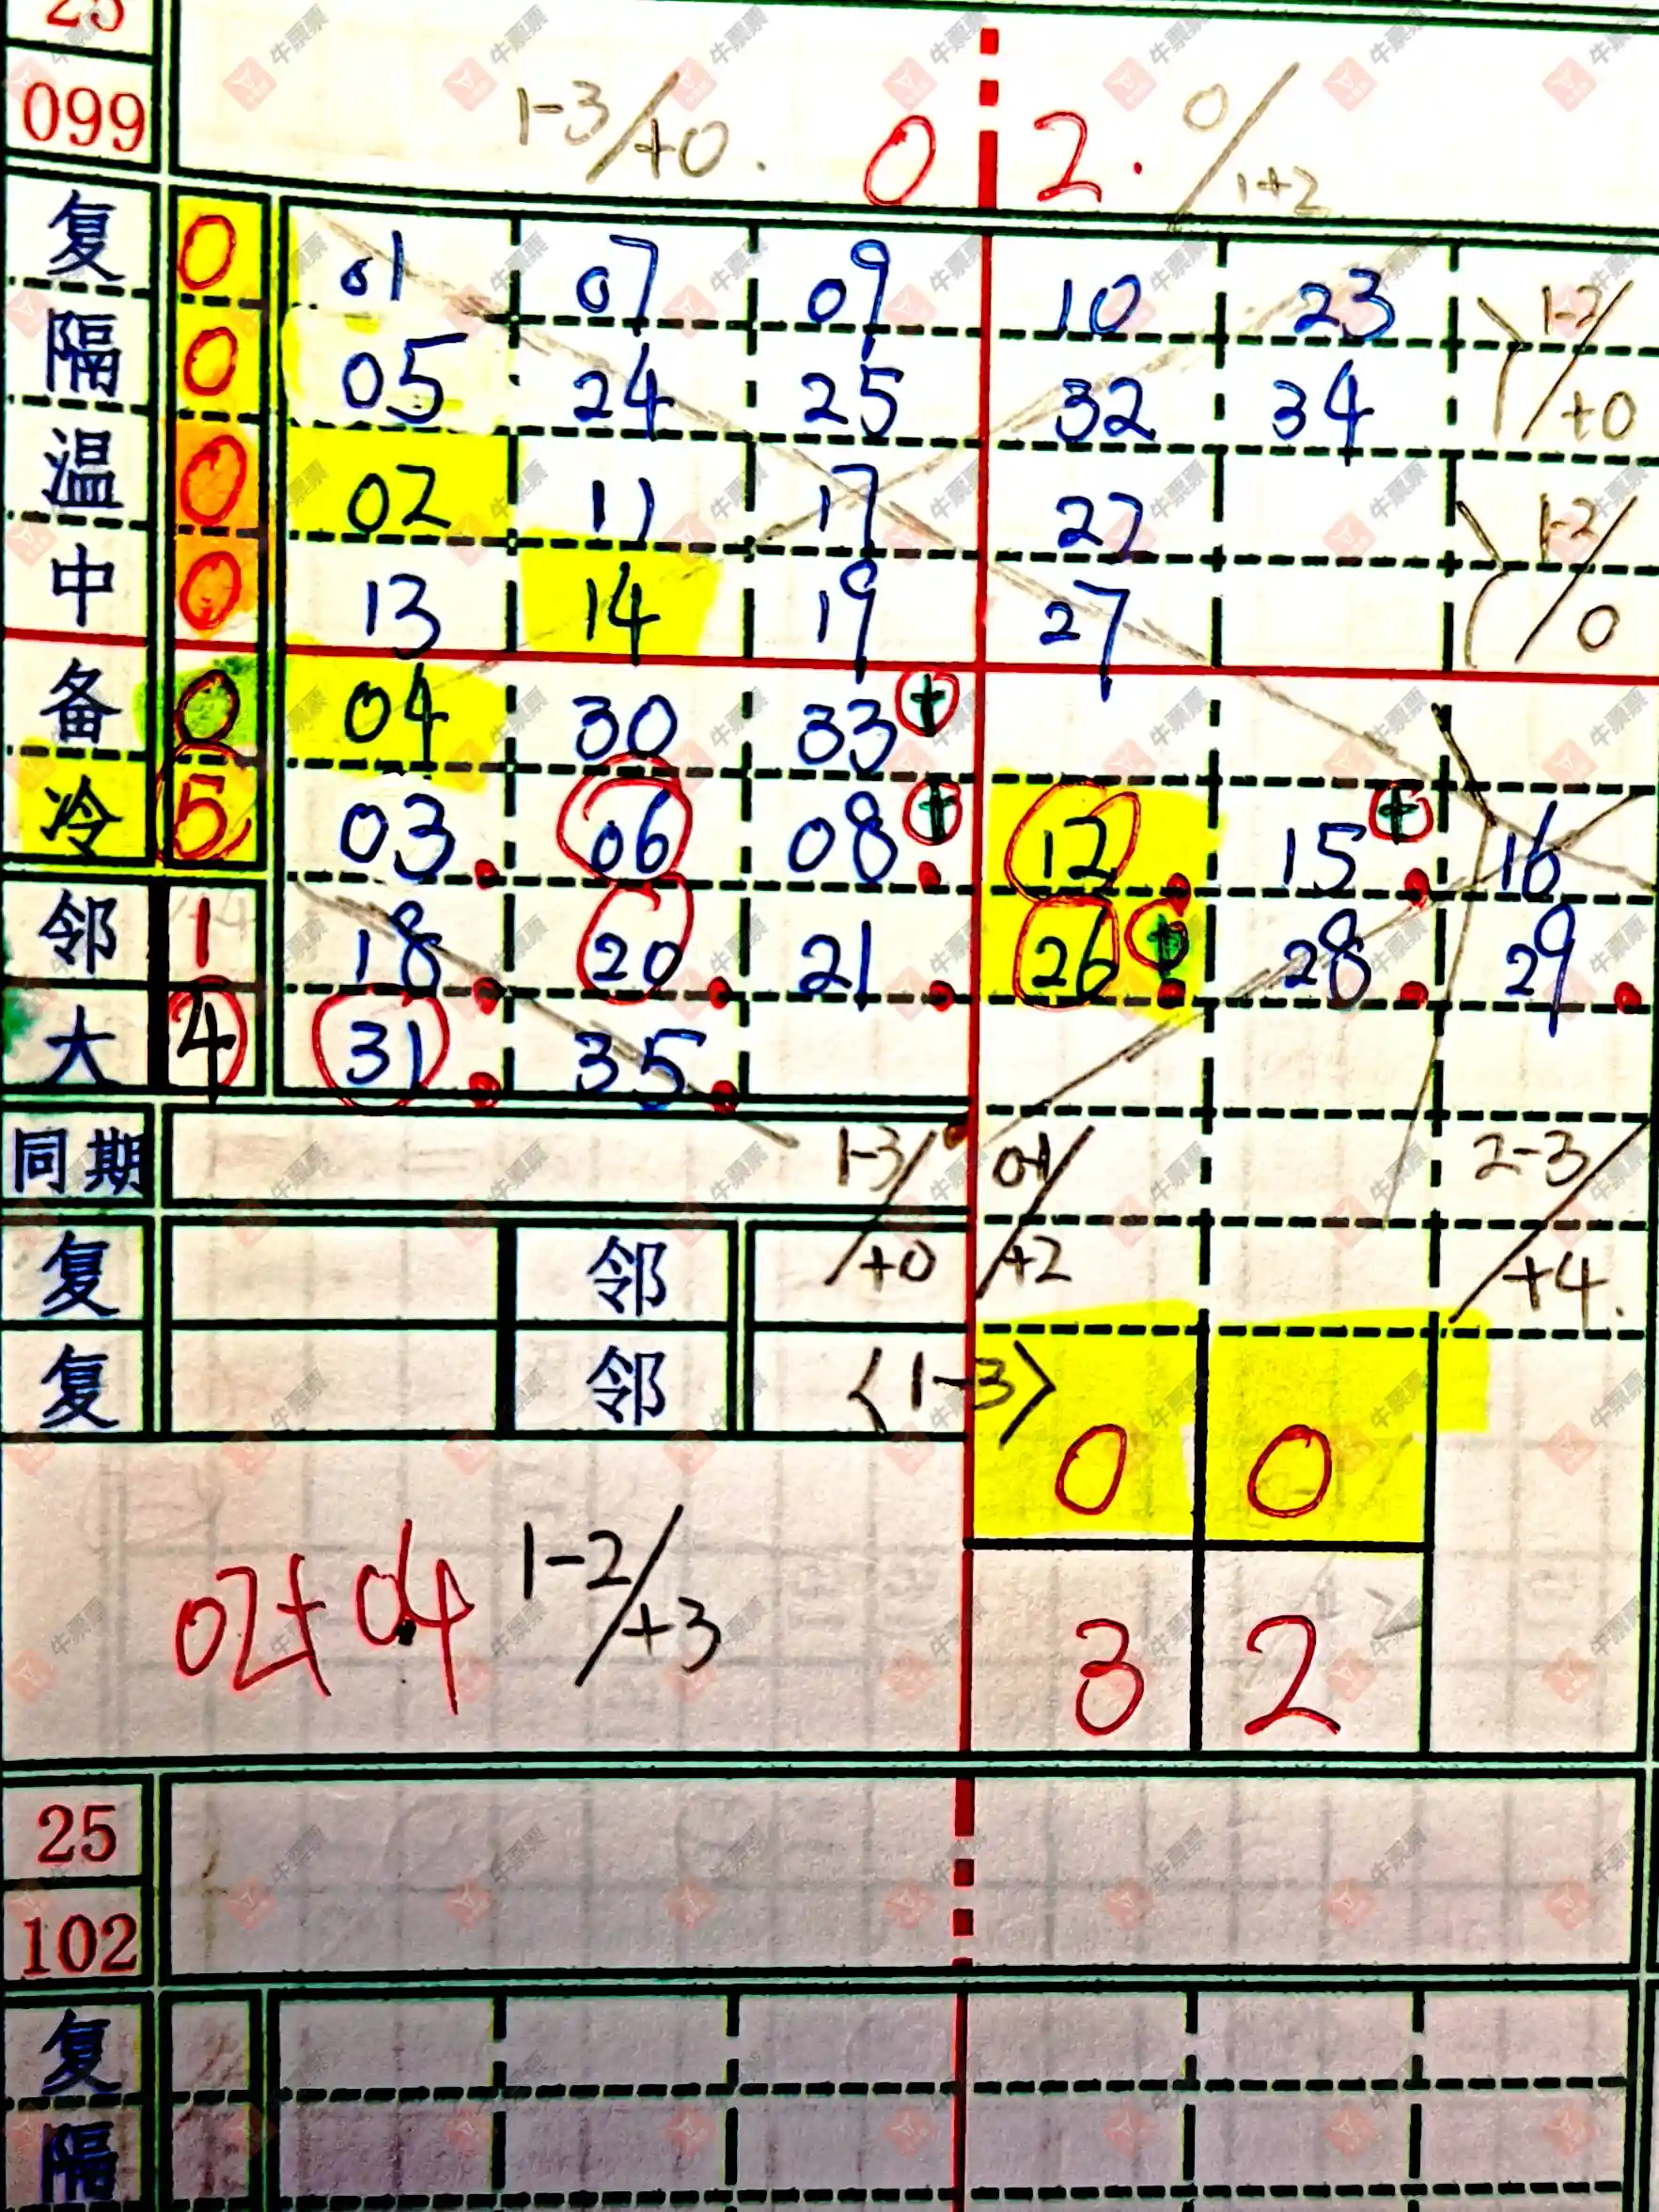 25
099 1-3/+0. 0 2. 0/1+2
复 0 01 07 09 10 23 1-2/+0
隔 0 05 24 25 32 34
温 0 02 11 17 22 1-2/0
中 0 13 14 19 27
备 0 04 30 33 +
冷 5 03 06 08 + 12 15 + 16
邻 1 18 20 21 26 + 28 29
大 4 31 35
同期 1-3/+0 0-1/+2 2-3/+4.
复 邻
复 邻 〈1-3〉
0 0
02+04 1-2/+3 3 2
25
102
复
隔
牛票票